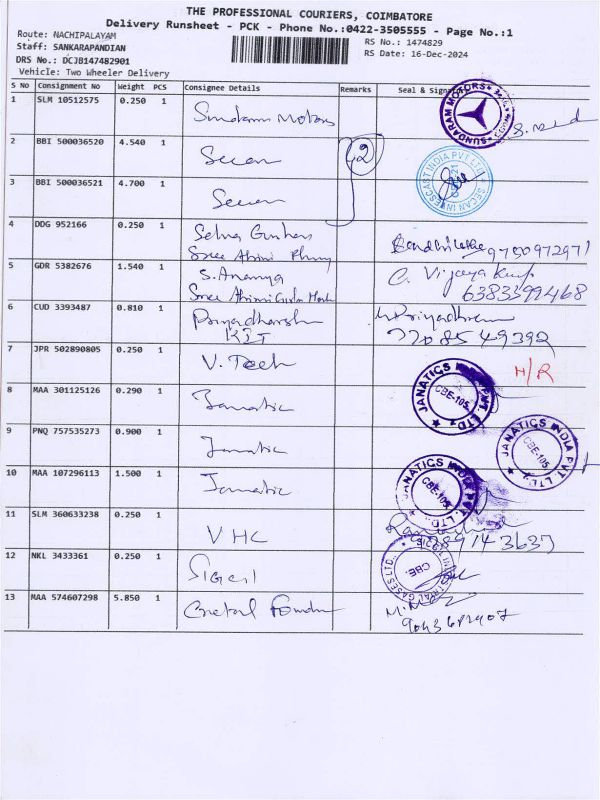 THE PROFESSIONAL COURIERS, COIMBATORE
Delivery Runsheet - PCK - Phone No.:0422-3505555 - Page No.:1
Route: NACHIPALAYAM
Staff: SANKARAPANDIAN
DRS No.: DCJB147482901
Vehicle: Two Wheeler Delivery
RS No.: 1474829
RS Date: 16-Dec-2024
S No Consignment No Weight PCS Consignee Details Remarks Seal &
1 SLM 10512575 0.250 1 Sundaram Motors
SUNDARAM MOTORS
2 BBI 500036520 4.540 1 Secan 2
SECAN INVESCAST INDIA PVT LTD
3 BBI 500036521 4.700 1 Secan
4 DDG 952166 0.250 1 Selva
Sree Abirami 9750972971
5 GDR 5382676 1.540 1 S. Ananya C. Vijaya
Sree Abirami 6383399468
6 CUD 3393487 0.810 1 Priyadharsh Priyadh
KIT 7708549392
7 JPR 502890805 0.250 1 V. Tech H/R
8 MAA 301125126 0.290 1 Janatic
JANATICS INDIA PVT. LTD. CBE-105.
9 PNQ 757535273 0.900 1 Janatic
JANATICS INDIA PVT. LTD. CBE-105.
10 MAA 107296113 1.500 1 Janatic
JANATICS INDIA PVT. LTD. CBE-105.
11 SLM 360633238 0.250 1 VHC
9789143637
12 NKL 3433361 0.250 1 Sigesil
INDUSTRIAL GASES LTD. CBE.
13 MAA 574607298 5.850 1
9043682407